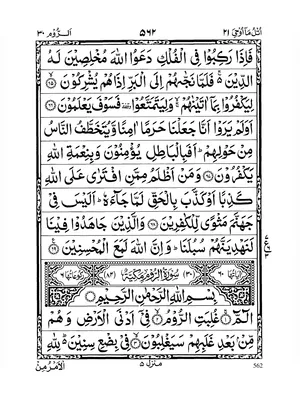 اتل ما اوحی ۲۱ ۵۶۲ الروم ۳۰
فَإِذَا رَكِبُوا فِي الْفُلْكِ دَعَوُا اللهَ مُخْلِصِينَ لَهُ
الدِّينَ ۚ فَلَمَّا نَجّٰهُمْ إِلَى الْبَرِّ إِذَا هُمْ يُشْرِكُونَ ﴿۶۵﴾
لِيَكْفُرُوا بِمَا اٰتَيْنٰهُمْ ۙ وَلِيَتَمَتَّعُوا ۥ فَسَوْفَ يَعْلَمُونَ ﴿۶۶﴾
اَوَلَمْ يَرَوْا اَنَّا جَعَلْنَا حَرَمًا اٰمِنًا وَّيُتَخَطَّفُ النَّاسُ
مِنْ حَوْلِهِمْ ۚ اَفَبِالْبَاطِلِ يُؤْمِنُونَ وَبِنِعْمَةِ اللهِ
يَكْفُرُونَ ﴿۶۷﴾ وَمَنْ اَظْلَمُ مِمَّنِ افْتَرٰى عَلَى اللهِ
كَذِبًا اَوْ كَذَّبَ بِالْحَقِّ لَمَّا جَآءَهٗ ۚ اَلَيْسَ فِي
جَهَنَّمَ مَثْوًى لِّلْكٰفِرِينَ ﴿۶۸﴾ وَالَّذِينَ جَاهَدُوا فِينَا
لَنَهْدِيَنَّهُمْ سُبُلَنَا ۚ وَاِنَّ اللهَ لَمَعَ الْمُحْسِنِينَ ﴿۶۹﴾
اٰیاتها ۶۰ (۳۰) سُوْرَةُ الرُّوْمِ مَكِّيَّةٌ (۸۴) رکوعاتها ۶
بِسْمِ اللهِ الرَّحْمٰنِ الرَّحِيْمِ
الٓمّٓ ﴿۱﴾ غُلِبَتِ الرُّوْمُ ﴿۲﴾ فِيْٓ اَدْنَى الْاَرْضِ وَهُمْ
مِّنْۢ بَعْدِ غَلَبِهِمْ سَيَغْلِبُوْنَ ﴿۳﴾ فِيْ بِضْعِ سِنِيْنَ ۬ لِلّٰهِ
الْاَمْرُ مِنْ منزل ۵ 562